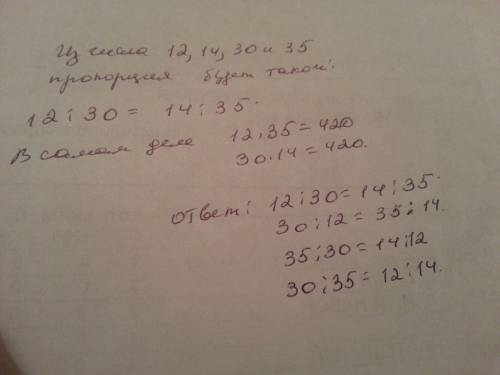 Из числа 12, 14, 30 и 35
пропорция будет такой:
12 : 30 = 14 : 35.
В самом дела 12 . 35 = 420
30 . 14 = 420.
ответ: 12 : 30 = 14 : 35.
30 : 12 = 35 : 14.
35 : 30 = 14 : 12
30 : 35 = 12 : 14.